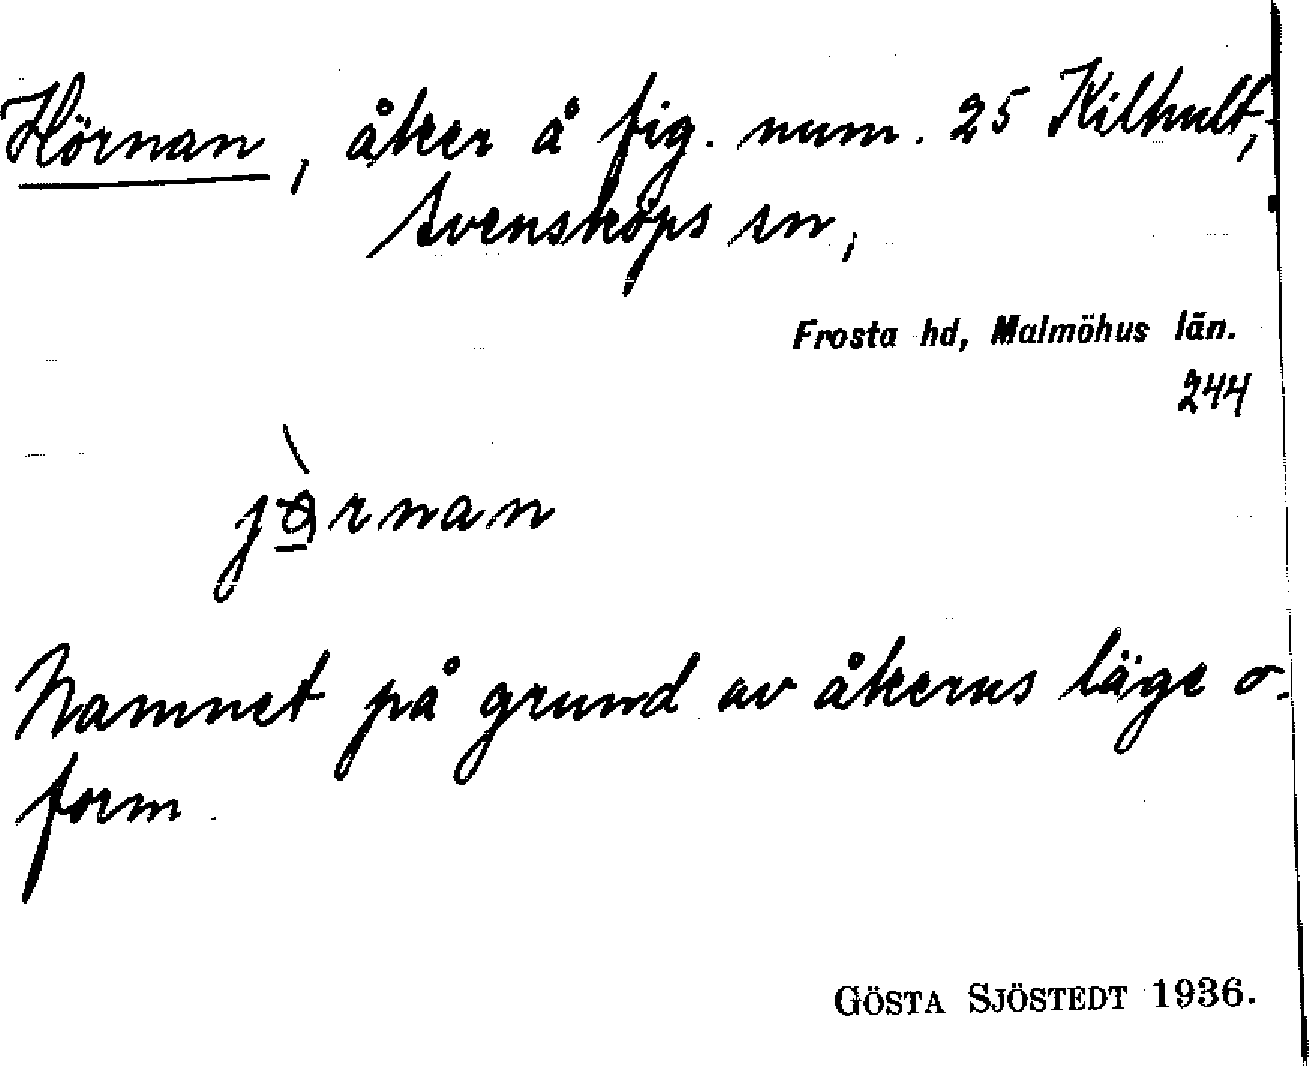 Hörnan, åker å fig. num. 25 Kilhult,
Svensköps sn,
Frosta hd, Malmöhus län.
244
jö̀rnan
Namnet på grund av åkerns läge o.
form.
GÖSTA SJÖSTEDT 1936.